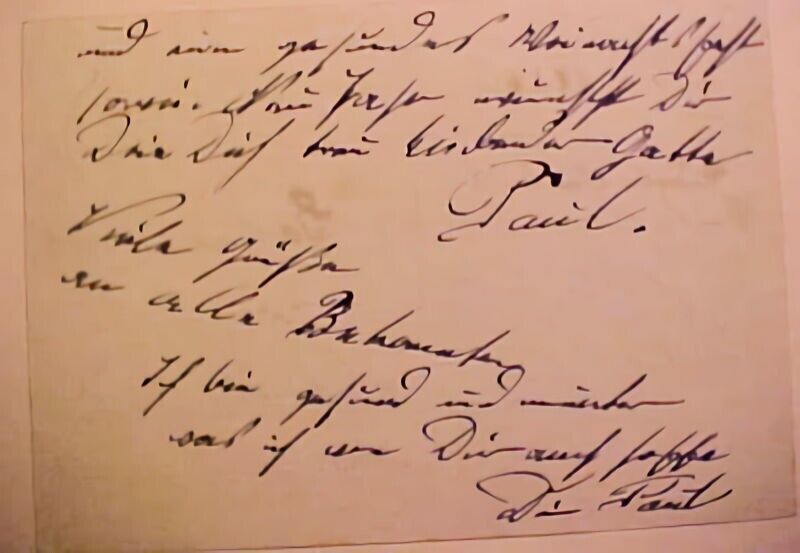 und ein gesundes Weinachtsfest
sowie Neu Jahr wünscht Dir
Dein Dich treu liebender Gatte
Paul.
Viele Grüße
an alle Bekannten
Ich bin gesund und munter
was ich von Dir auch hoffe
Dein Paul